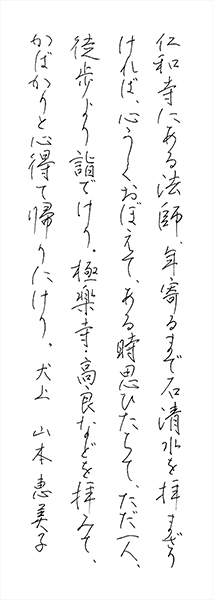 仁和寺にある法師、年寄るまで石清水を拝まざり
ければ、心うくおぼえて、ある時思ひたちて、ただ一人、
徒歩より詣でけり。極楽寺・高良などを拝みて、
かばかりと心得て帰りにけり。 犬上 山本恵美子